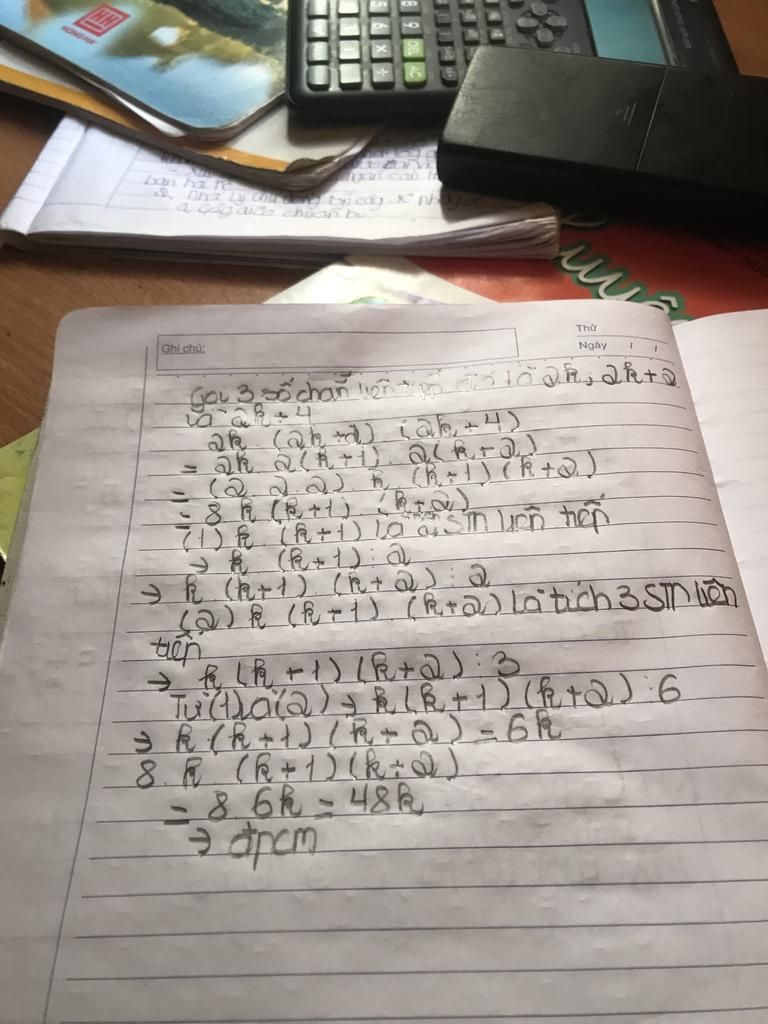 HỒNG HÀ
AC
Ghi chú:
Thứ
Ngày / /
Gọi 3 số chẵn liên tiếp là 2k; 2k+2
và 2k+4
2k (2k+2) (2k+4)
= 2k 2(k+1) 2(k+2)
= (2 2 2) k (k+1) (k+2)
= 8 k (k+1) (k+2)
(1) k (k+1) là 2 STN liên tiếp
→ k (k+1) : 2
→ k (k+1) (k+2) : 2
(2) k (k+1) (k+2) là tích 3 STN liên
tiếp
→ k (k+1) (k+2) : 3
Từ (1) và (2) → k(k+1) (k+2) : 6
→ k (k+1) (k+2) = 6k
8. k (k+1)(k+2)
= 8 6k = 48k
→ đpcm